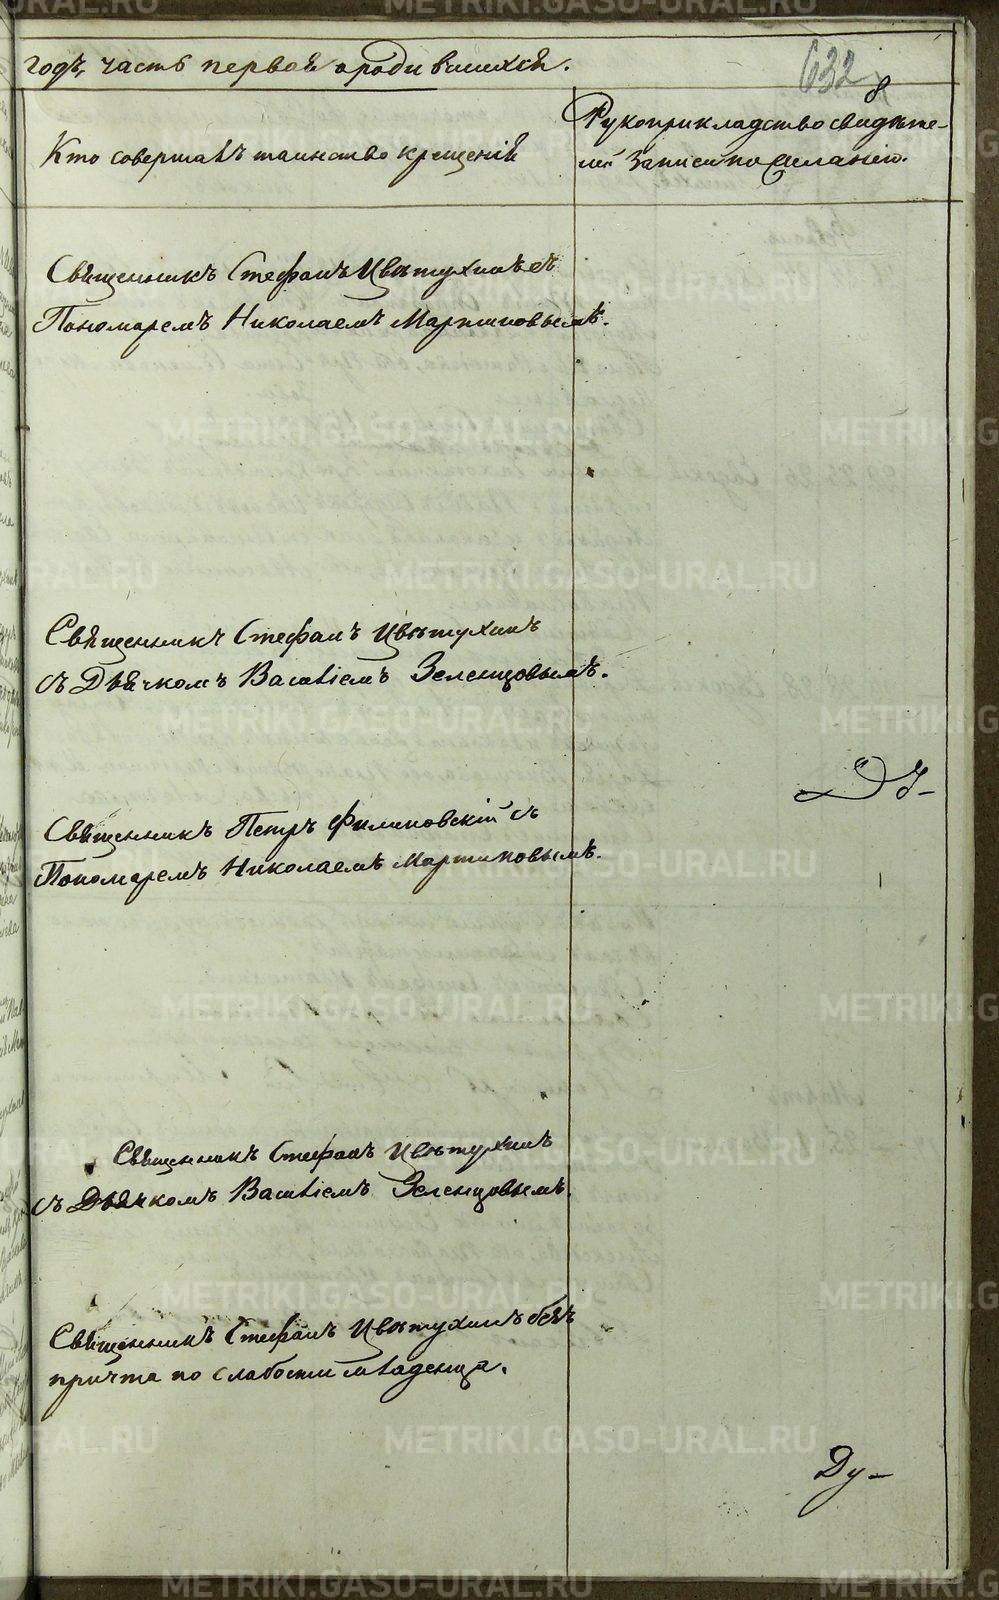 годъ, часть первой о родившихся.
632
8
Кто совершалъ таинство крещенія
Рукоприкладство свидѣте-
лей записи по желанію.
Священникъ Стефанъ Цвѣтухинъ съ
Пономаремъ Николаемъ Мартиновымъ.
Священникъ Стефанъ Цвѣтухинъ
съ Дьячкомъ Василіемъ Зеленцовымъ.
Священникъ Петръ Филиповскій съ
Пономаремъ Николаемъ Мартиновымъ.
Священникъ Стефанъ Цвѣтухинъ
съ Дьячкомъ Василіемъ Зеленцовымъ.
Священникъ Стефанъ Цвѣтухинъ безъ
причта по слабости младенца.
Ду-
METRIKI.GASO-URAL.RU